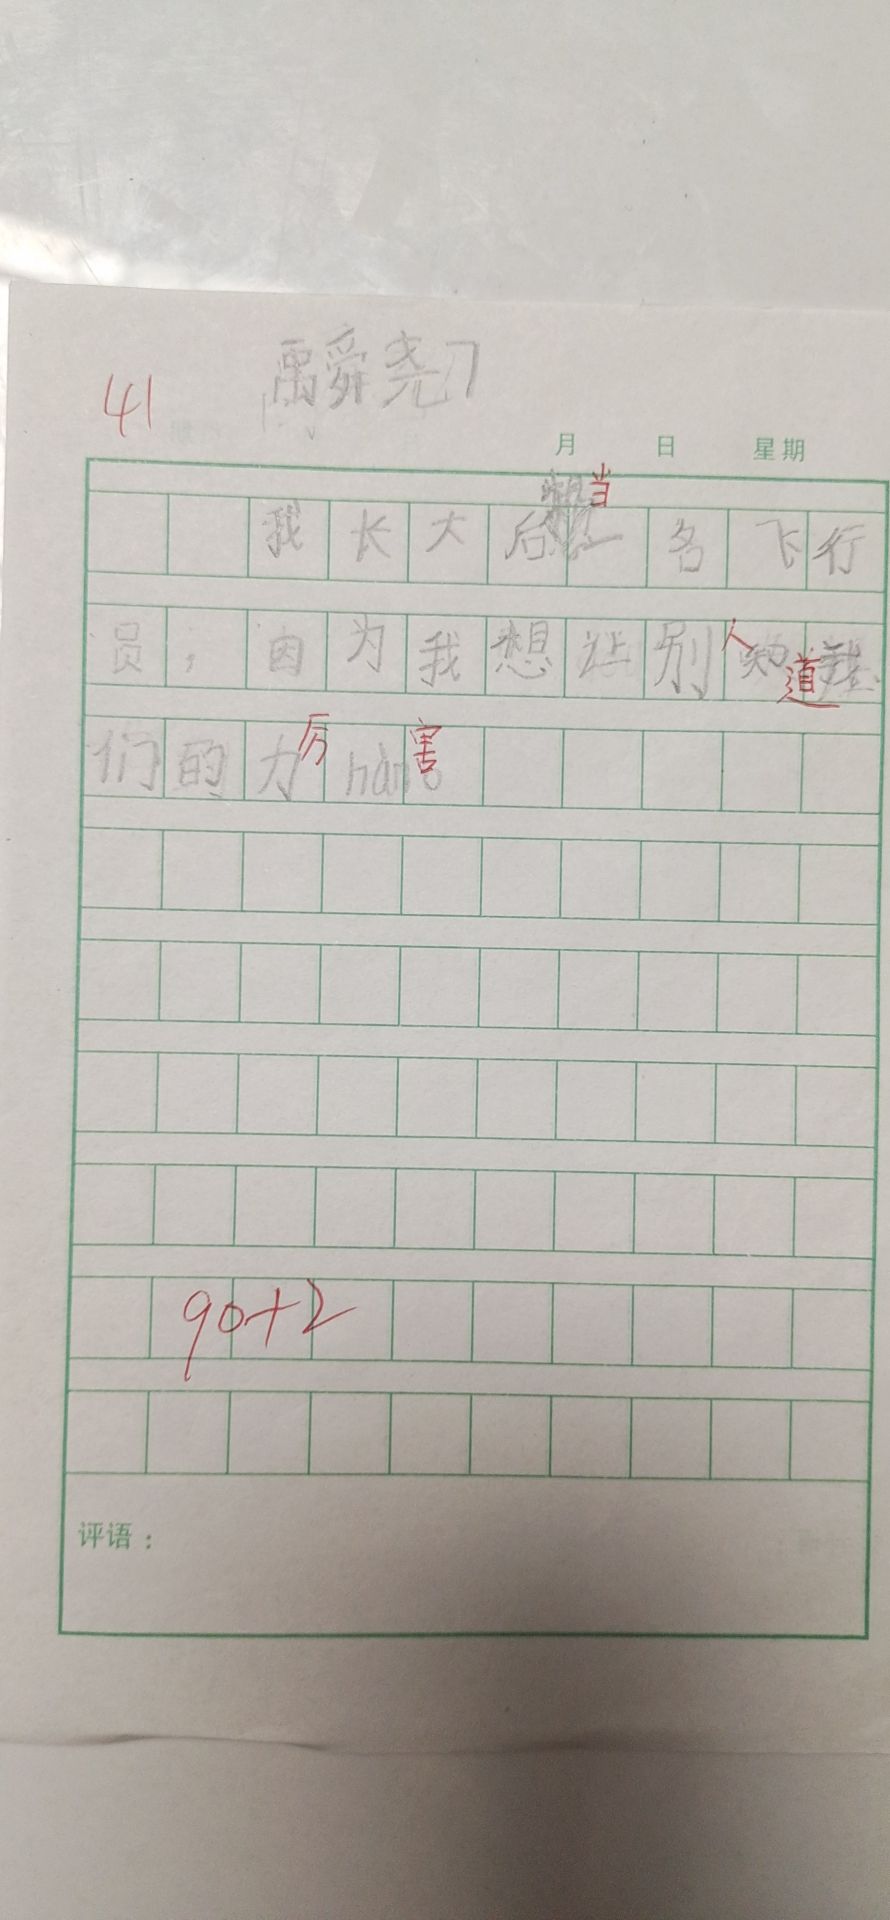 禹舜尧17
41
月 日 星期
当
我长大后一名飞行
员，因为我想让别人知道我
们的力厉hai害。
90+2
评语：